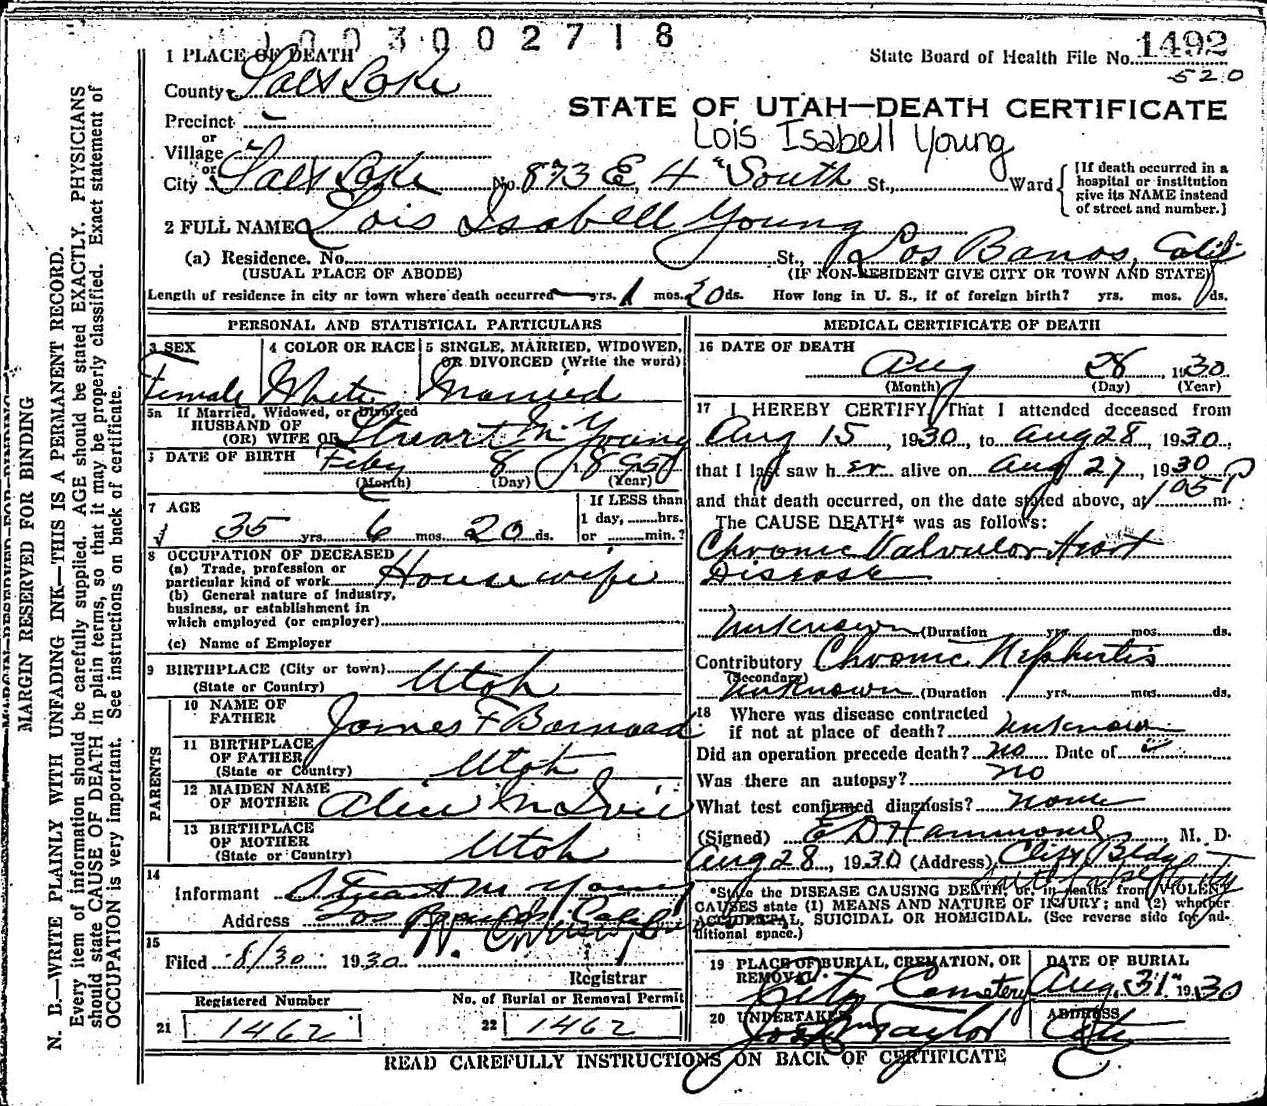 1003002718
1 PLACE OF DEATH
State Board of Health File No. 1492
520
County Salt Lake
STATE OF UTAH—DEATH CERTIFICATE
Precinct
Lois Isabell Young
or
Village
or
City Salt Lake No. 873 E, 4" South St., Ward
[If death occurred in a
hospital or institution
give its NAME instead
of street and number.]
2 FULL NAME Lois Isabell Young
(a) Residence. No. St., Los Banos, Calif
(USUAL PLACE OF ABODE) (IF NON-RESIDENT GIVE CITY OR TOWN AND STATE)
Length of residence in city or town where death occurred — yrs. 1 mos. 20 ds. How long in U. S., if of foreign birth? yrs. mos. ds.
PERSONAL AND STATISTICAL PARTICULARS
3 SEX 4 COLOR OR RACE 5 SINGLE, MARRIED, WIDOWED,
OR DIVORCED (Write the word)
Female White Married
5a If Married, Widowed, or Divorced
HUSBAND OF
(OR) WIFE OF Stuart M. Young
DATE OF BIRTH Feby 8 1895
(Month) (Day) (Year)
7 AGE
If LESS than
1 day, ......hrs.
or ......min.?
35 yrs. 6 mos. 20 ds.
8 OCCUPATION OF DECEASED
(a) Trade, profession or
particular kind of work Housewife
(b) General nature of industry,
business, or establishment in
which employed (or employer)
(c) Name of Employer
9 BIRTHPLACE (City or town)
(State or Country) Utah
PARENTS
10 NAME OF
FATHER James F Barnard
11 BIRTHPLACE
OF FATHER
(State or Country) Utah
12 MAIDEN NAME
OF MOTHER Alice
13 BIRTHPLACE
OF MOTHER
(State or Country) Utah
14
Informant Stuart M Young
Address Los Banos Calif
15
Filed 8/30 1930
Registrar
Registered Number No. of Burial or Removal Permit
21 1462 22 1462
MEDICAL CERTIFICATE OF DEATH
16 DATE OF DEATH
Aug 28 1930
(Month) (Day) (Year)
17 I HEREBY CERTIFY, That I attended deceased from
Aug 15, 1930, to Aug 28, 1930,
that I last saw her alive on Aug 27, 1930
and that death occurred, on the date stated above, at 105 P m.
The CAUSE DEATH* was as follows:
Chronic Valvular Heart
Disease
Unknown (Duration yrs. mos. ds.
Contributory Chronic Nephritis
(Secondary)
Unknown (Duration yrs. mos. ds.
18 Where was disease contracted
if not at place of death? Unknown
Did an operation precede death? No Date of
Was there an autopsy? no
What test confirmed diagnosis? none
(Signed) E D Hammond, M. D.
Aug 28, 1930 (Address) Clift Bldg
*State the DISEASE CAUSING DEATH, or, in deaths from VIOLENT
CAUSES state (1) MEANS AND NATURE OF INJURY; and (2) whether
ACCIDENTAL, SUICIDAL OR HOMICIDAL. (See reverse side for ad-
ditional space.)
19 PLACE OF BURIAL, CREMATION, OR DATE OF BURIAL
REMOVAL
City Cemetery Aug. 31" 1930
20 UNDERTAKER ADDRESS
Jos Wm Taylor City
READ CAREFULLY INSTRUCTIONS ON BACK OF CERTIFICATE
MARGIN RESERVED FOR BINDING
N. B.—WRITE PLAINLY WITH UNFADING INK—THIS IS A PERMANENT RECORD.
Every item of information should be carefully supplied. AGE should be stated EXACTLY. PHYSICIANS
should state CAUSE OF DEATH in plain terms, so that it may be properly classified. Exact statement of
OCCUPATION is very important. See instructions on back of certificate.